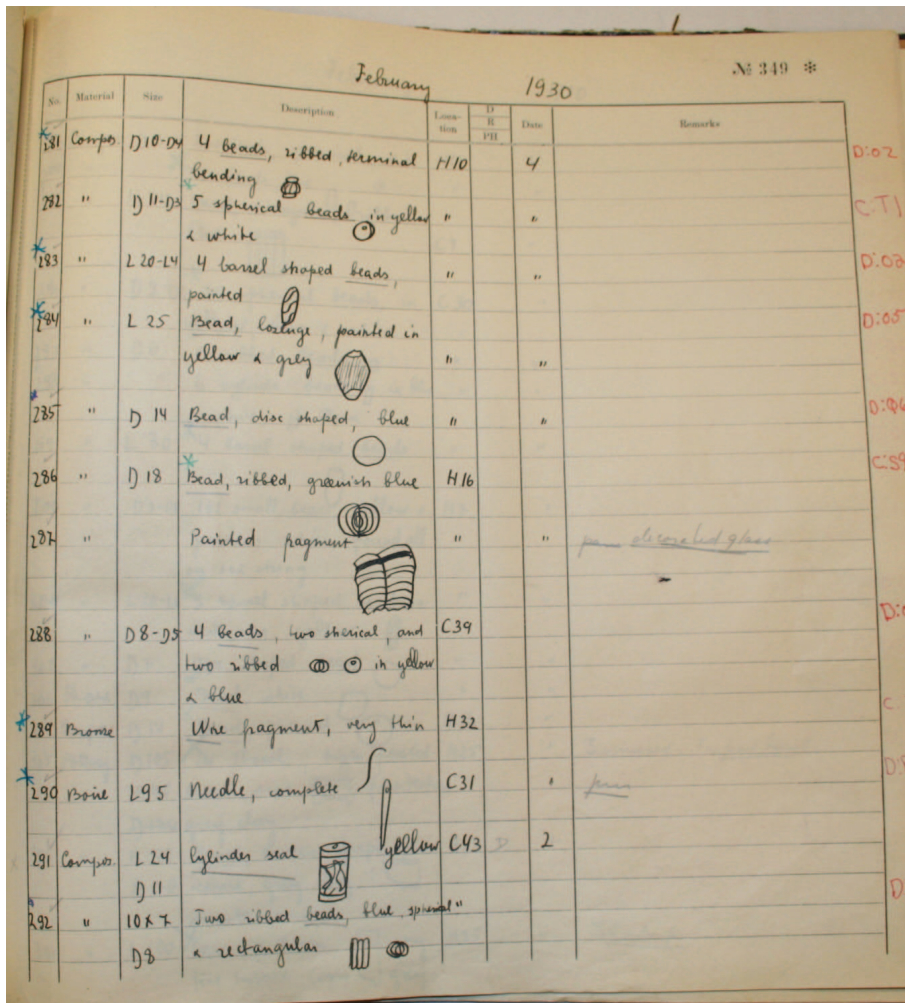 № 349 *
February 1930
No. Material Size Description Loca- D Date Remarks
tion R
PH.
281 Compos D10-D4 4 beads, ribbed, terminal H10 4 D:02
bending
282 " D11-D3 5 spherical beads in yellow " " C:T1
& white
283 " L20-L4 4 barrel shaped beads, " " D:03
painted
284 " L25 Bead, lozenge, painted in D:05
yellow & grey " "
285 " D14 Bead, disc shaped, blue " "
286 " D18 Bead, ribbed, greenish blue H16
287 " Painted fragment " " decorated glass
288 " D8-D5 4 beads, two sherical, and C39
two ribbed in yellow
& blue
289 Bronze Wire fragment, very thin H32
290 Bone L95 Needle, complete C31 "
291 Compos. L24 Cylinder seal yellow C43 D 2
D11
292 " 10x7 Two ribbed beads, blue, spherial "
D8 & rectangular